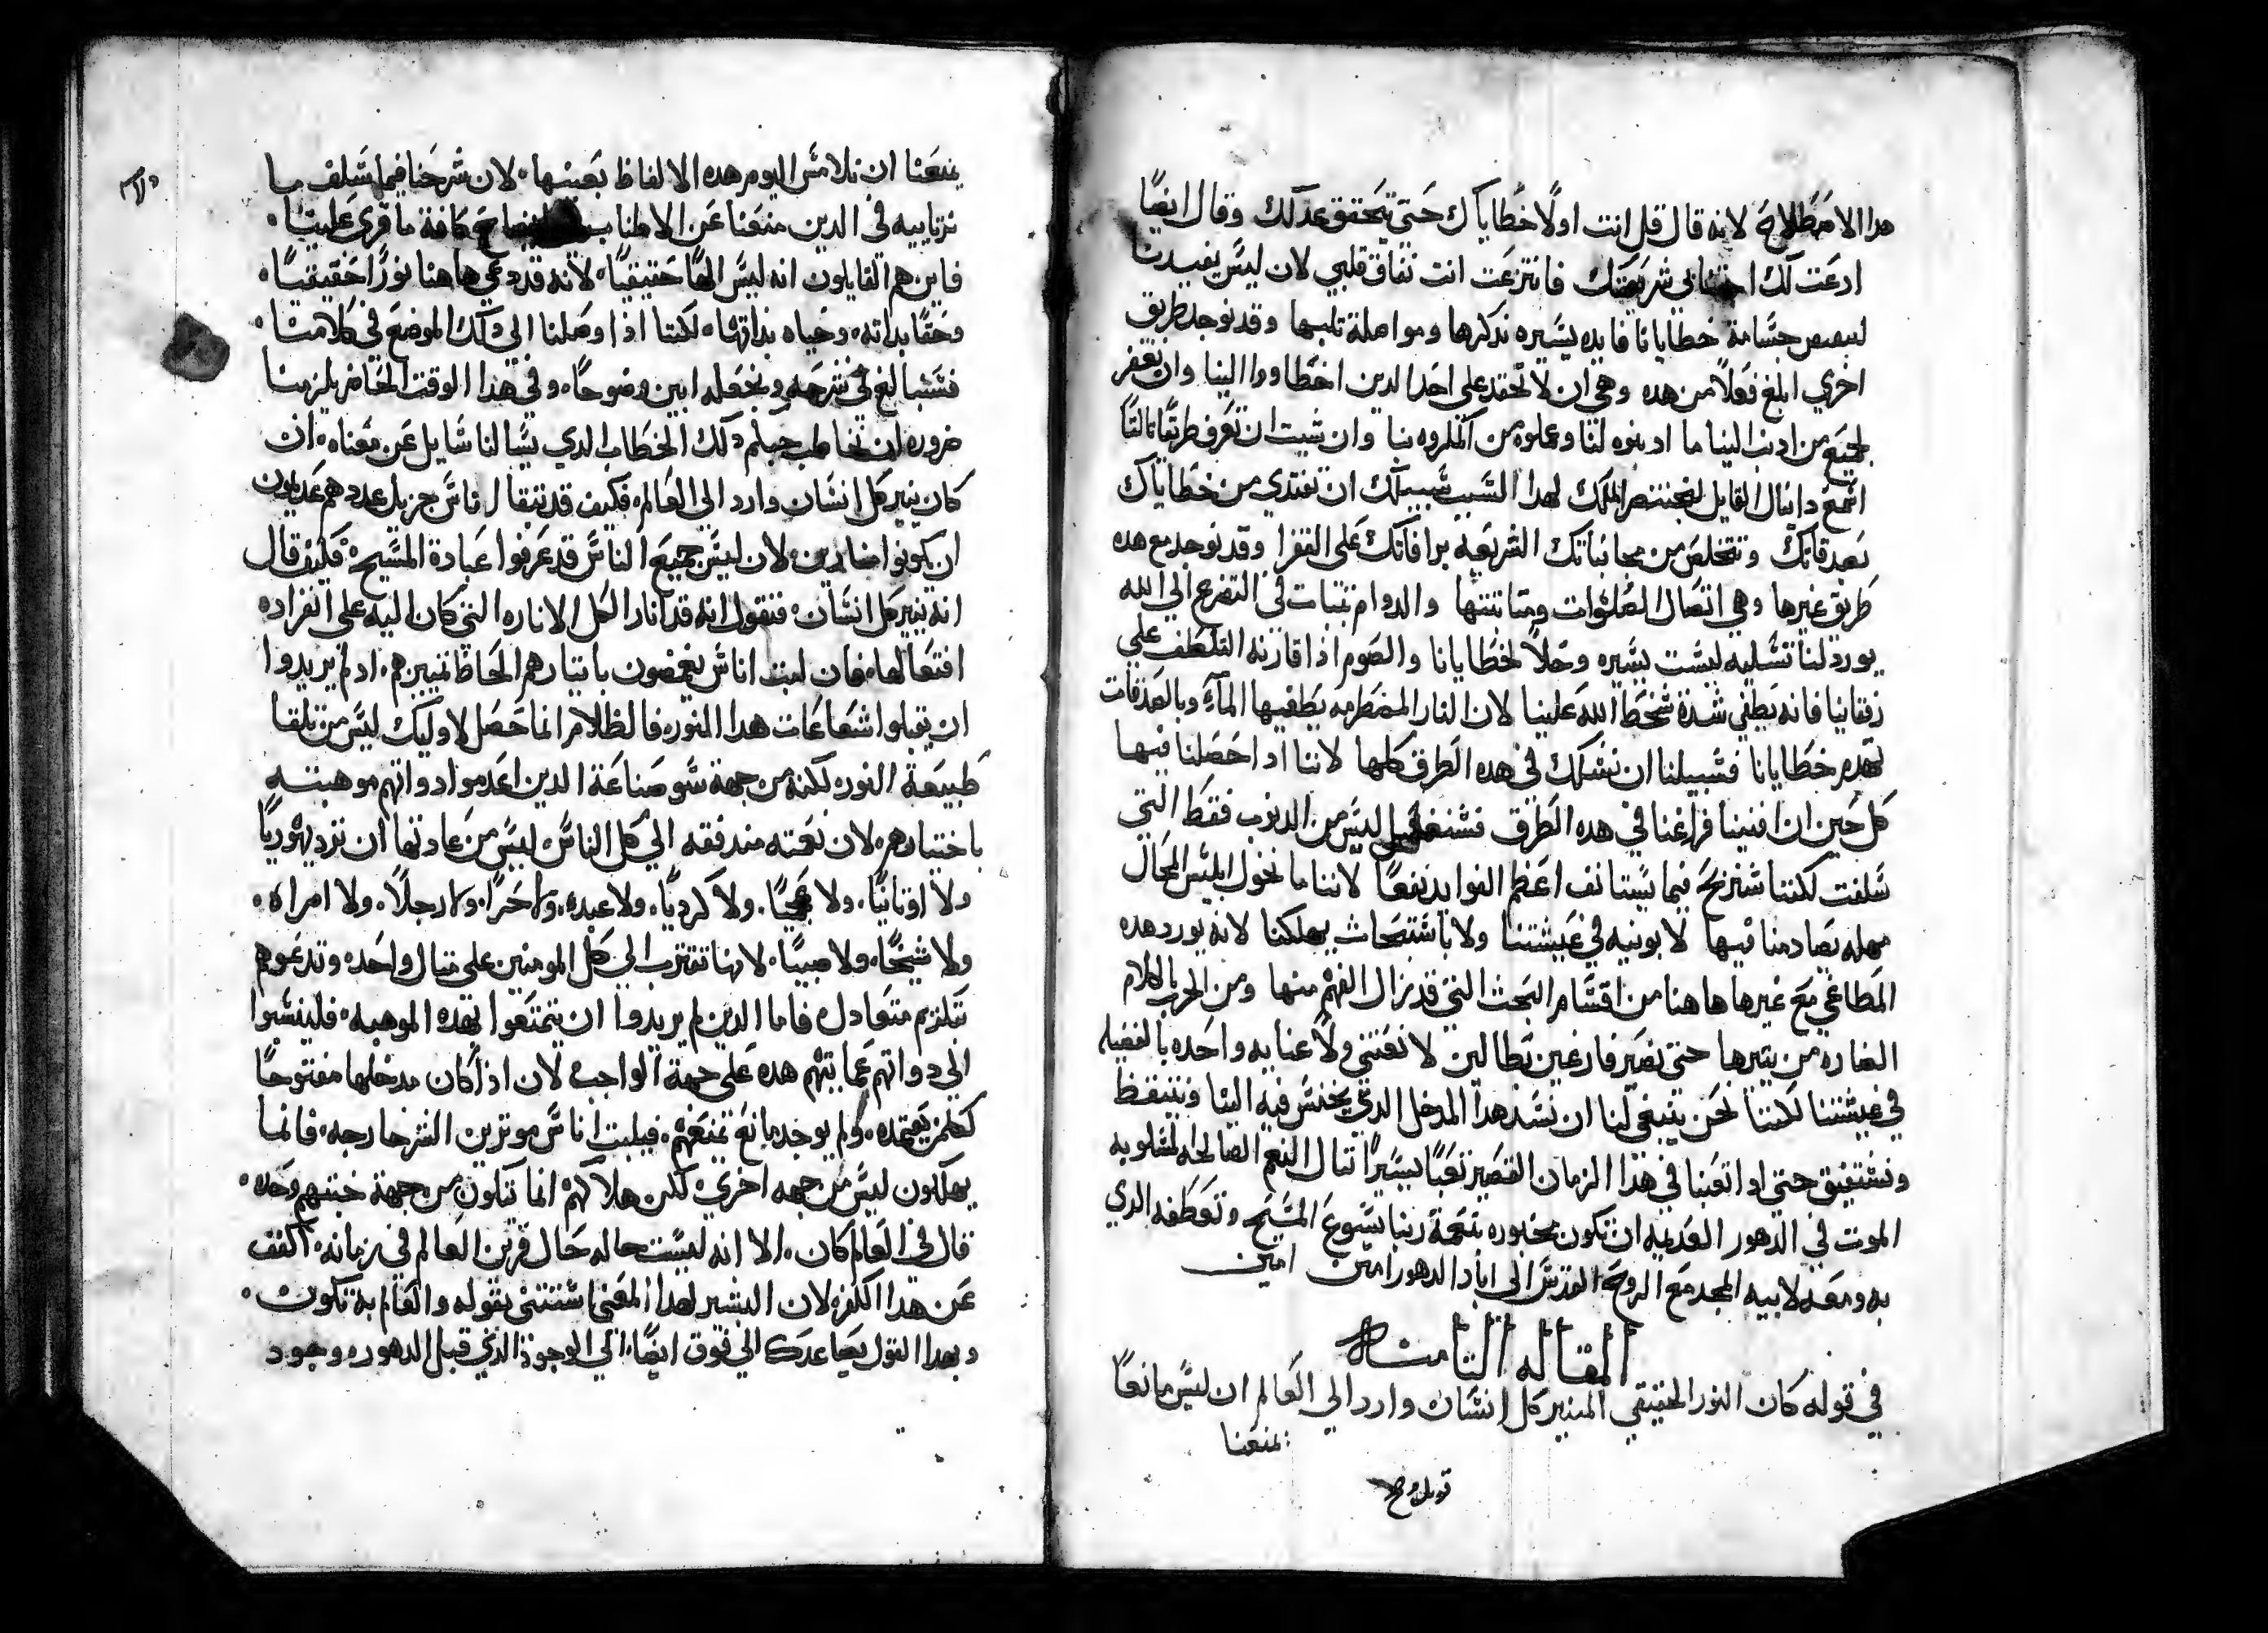 هدا الاصطلاح لانه قال قل انت اولًا خطاياك حتى تتحقق عدلك وقال ايضًا
ادعت لك شريعتك فانتزعت انت نفاق قلبي لان ليس يفيدنا
لبعض جسامة خطايانا فايده يسيره ندكرها ومواصلة تلبها وقد توجد طريق
اخري ابلغ فعلًا من هده وهي ان لا تحقد على احد الدين اخطاووا الينا وان تغفر
لجميع من ادنب الينا ما ادنبوه لنا وعملوه من المكروه بنا وان شيت ان تعرف طريقًا ثالثًا
اسمع دانيال القايل لبختنصر الملك لهدا السبب سبيلك ان تفتدي من خطاياك
بصدقاتك وتتخلص من مجانباتك الشريعه برافاتك على الفقرا وقد توجد مع هده
طريق غيرها وهي اتصال الصلوات ومتانتها والدوام بثبات في التضرع الي الله
يورد لنا تسليه ليست يسيره وحلًا لخطايانا والصوم اذا قارنه التلطف علي
رفقاينا فانه يطفي شدة سخط الله علينا لان النار المضطرمه يطفيها المآء وبالصدقات
تهدم خطايانا فسبيلنا ان نسلك في هده الطرق كلها لاننا اداحصلنا فيها
كل حين ان افنينا فراغنا في هده الطرق ليس من الدنوب فقط التي
سلفت لكننا سنربح فيما يستانف اعظم الفوايد نفعًا لاننا ما نخول ابليس المحال
مهله يصادمنا فيها لا بونيه في عيشتنا ولا باستبحاث يهلكنا لانه يورد هده
المطاغي مع غيرها هاهنا من اقسام البحث التي قد يزال الفهم منها ومن الحرب بالكلام
الضاره من يتيرها حتى نصير فارغين بطالين لا نعتني ولا عنايه واحده بالفضيله
في عيشتنا لكننا نحن ينبغي لنا ان نسد هدا المدخل الدي يختس فيه الينا ونتيقظ
ونستفيق حتي اد اتعبنا في هذا الزمان القصير تعبًا يسيرًا ننال النعم الصالحه المسلوبه
الموت في الدهور العديمه ان تكون محدوده بنعمة ربنا يسوع المسيح وتعطفه الدي
به ومعه لابيه المجد مع الروح القدس الى اباد الدهور امين امين
المقاله الثامنه
في قوله كان النور الحقيقي المنير كل انسان وارد الي العالم ان ليس مانعًا
يمنعنا
قوبل وصح
يمنعنا ان نلامس اليوم هده الالفاظ بعينها. لان شرحنا فيما سلف ما
نرتاييه في الدين منعنا عن الاطناب ايضاح كافة ما قري علينا.
فاين هم القايلون انه ليس الهًا حقيقيًا. لانه قد دعي هاهنا نورًا حقيقيًا.
وحقًا بداته. وحياه بداتها. لكننا اذا وصلنا الي دلك الموضع في كلامنا.
فسنبالغ في شرحه ونجعله ابين وضوحًا. وفي هدا الوقت الحاضر يلزمنا
ضروره ان نخاطب حبكم دلك الخطاب الدي يسالنا سايل عن معناه. ان
كان ينير كل انسان وارد الي العالم. فكيف قد تبقا ناس جزيل عددهم عديمون
ان يكونوا لان ليس جميع الناس قد عرفوا عبادة المسيح. فكيف قال
انه ينير كل انسان. فنقول انه قد انار الكل الاناره التي كان اليه على انفراده
افتعالها. فان لبث اناس يغمضون بايثارهم الحاظ تمييزهم. اد لم يريدوا
ان يقبلوا شعاعات هدا النور. فالظلام انما حصل لاوليك ليس من تلقا
طبيعة النور. لكنه من جهة سو صناعة الدين اعدموا دواتهم موهبته
باختيارهم. لان نعمته مندفقه الي كل الناس. ليس من عادتها ان تزد يهوديًا
ولا اوثانيًا. ولا عجميًا. ولا كرديًا. ولا عبد. ولا حرًا. ولا رجلًا. ولا امراه.
ولا شيخًا. ولا صبيًا. لانها تقترب الي كل المومنين علي مثال واحد. وتدعوهم
بتكريم متعادل. فاما الدين لم يريدوا ان يتمتعوا بهده الموهبه. فلينسبوا
الي دواتهم عمايتهم هده علي جهة الواجب. لان اذا كان مدخلها مفتوحًا
كلمن يعتمده. ولم يوجد مانع يمنعهم. فيلبث اناس موثرين الشر خارجه. فانما
يهلكون ليس من جهه اخري. لكن هلاكهم انما تكون من جهة خبثهم وحده.
قال في العالم كان. الا انه ليست حاله حال قرين العالم في زمانه. اكفف
عن هدا الكفر. لان البشير لهدا المعني استثني بقوله والعالم به تكون.
وبهدا القول يصاعدك الي فوق ايضًا. الي الوجود الذي قبل الدهور. وجود